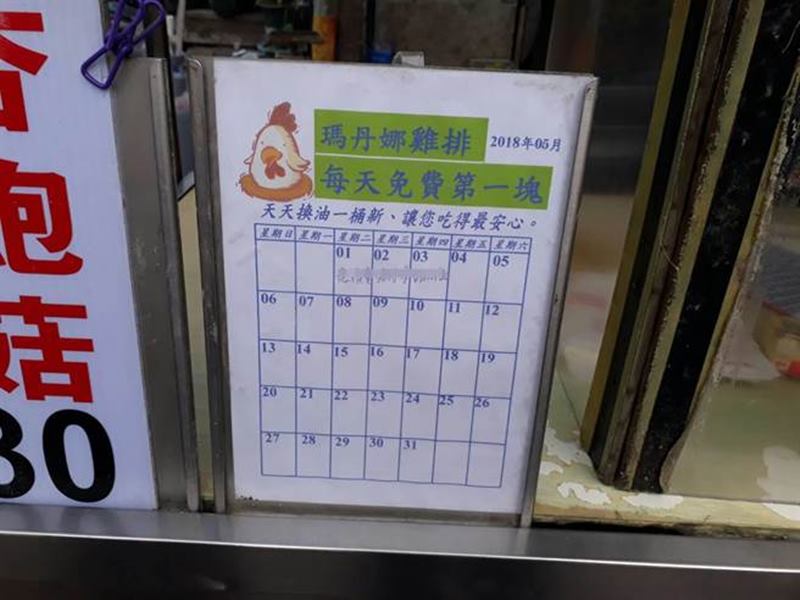 瑪丹娜雞排
2018年05月
每天免費第一塊
天天換油一桶新、讓您吃得最安心。
星期日 星期一 星期二 星期三 星期四 星期五 星期六
01 02 03 04 05
06 07 08 09 10 11 12
13 14 15 16 17 18 19
20 21 22 23 24 25 26
27 28 29 30 31
杏鮑菇
30